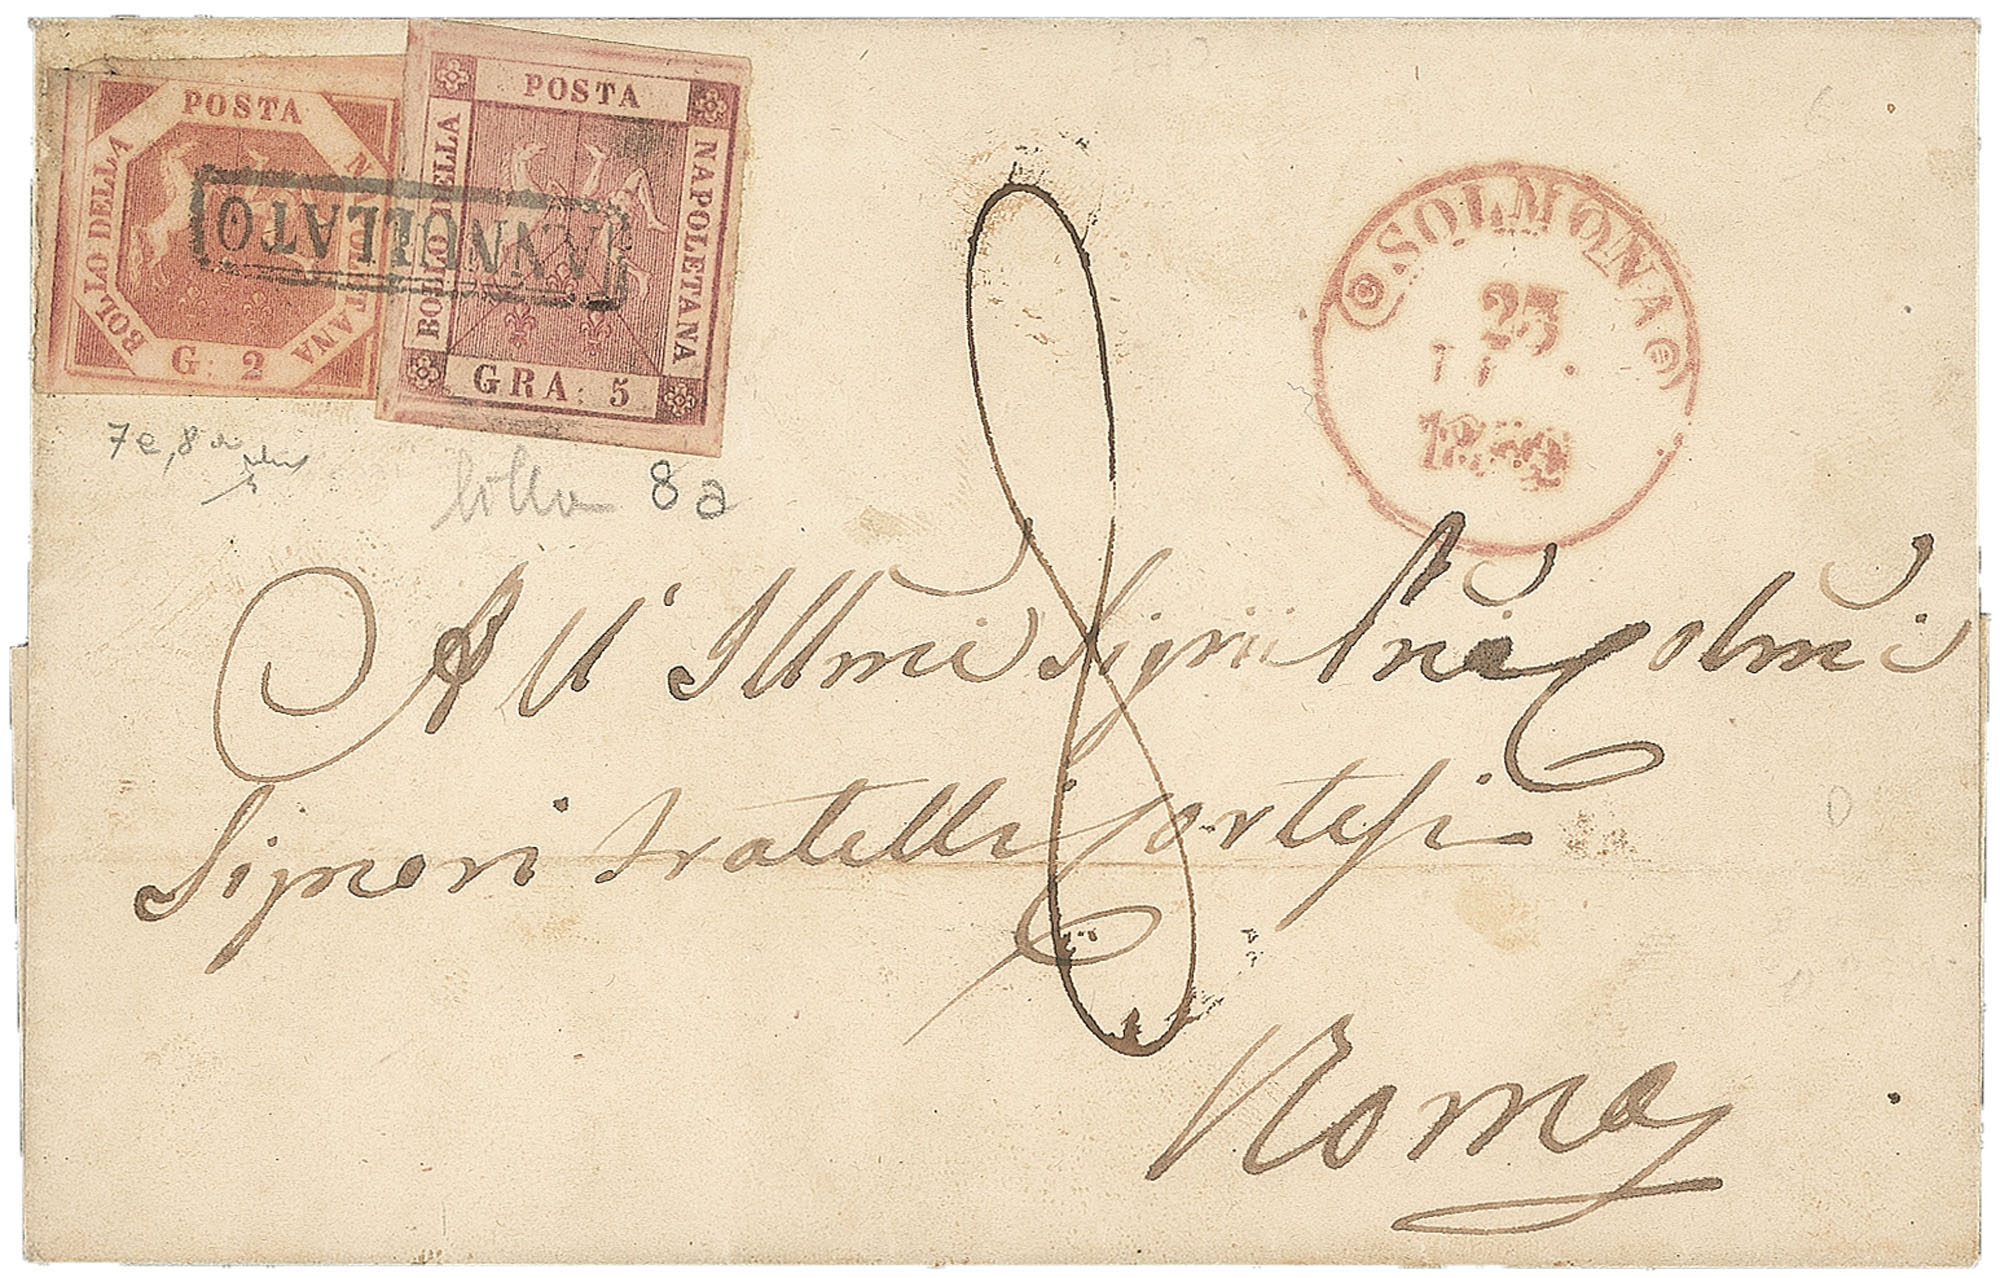 POSTA
BOLLO DELLA
NAPOLETANA
G: 2
POSTA
BOLLO DELLA
NAPOLETANA
GRA: 5
ANNULLATO
7e, 8
8a
SOLMONA
23
8
All' Illmi Sigrii Pñi Colmi
Signori Fratelli Cortesi
Roma